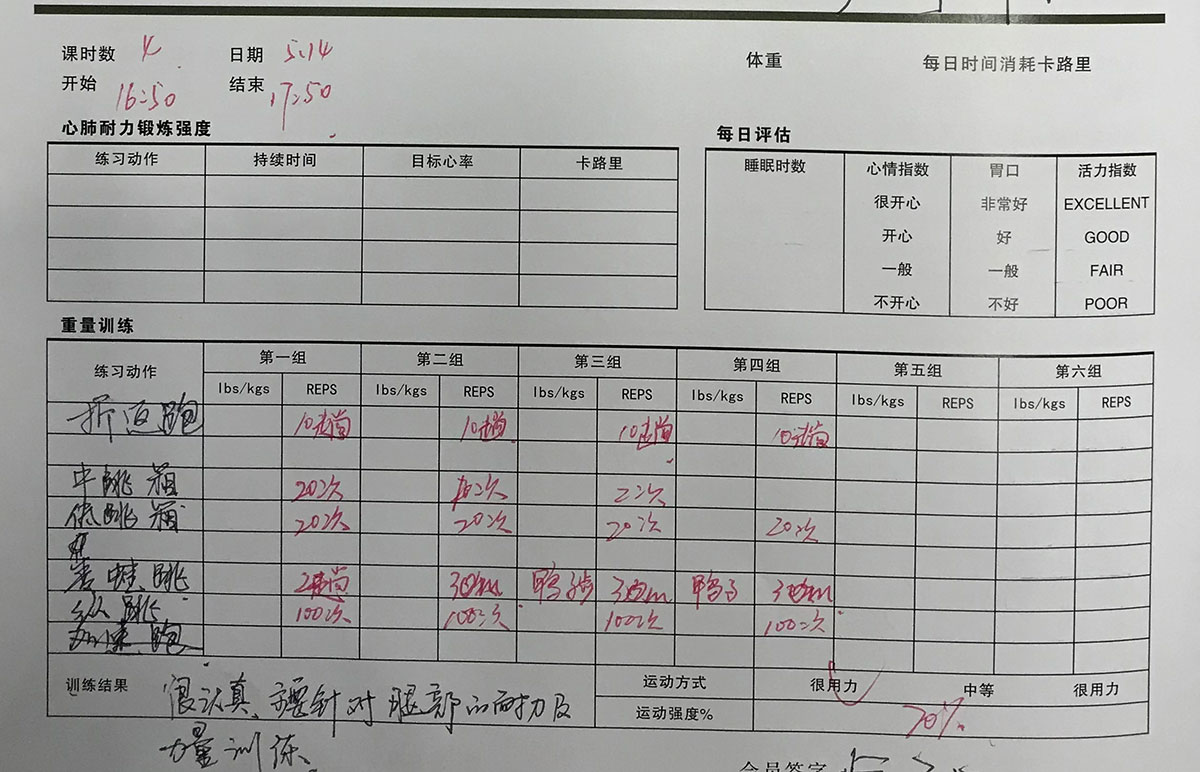 课时数 4 日期 5.14 体重 每日时间消耗卡路里
开始 16:50 结束 17:50
心肺耐力锻炼强度
练习动作 持续时间 目标心率 卡路里
每日评估
睡眠时数 心情指数 胃口 活力指数
很开心 非常好 EXCELLENT
开心 好 GOOD
一般 一般 FAIR
不开心 不好 POOR
重量训练
练习动作 第一组 第二组 第三组 第四组 第五组 第六组
lbs/kgs REPS lbs/kgs REPS lbs/kgs REPS lbs/kgs REPS lbs/kgs REPS lbs/kgs REPS
折返跑 10趟 10趟 10趟 10趟
中跳箱 20次 次 2次
低跳箱 20次 20次 20次 20次
蛙跳 2趟 30m 鸭子步 30m 鸭子 30m
纵跳 100次 100次 100次 100次
加速跑
训练结果 很认真、主要针对腿部的耐力及
力量训练、
运动方式 很用力 中等 很用力
运动强度% 70%
会员签字